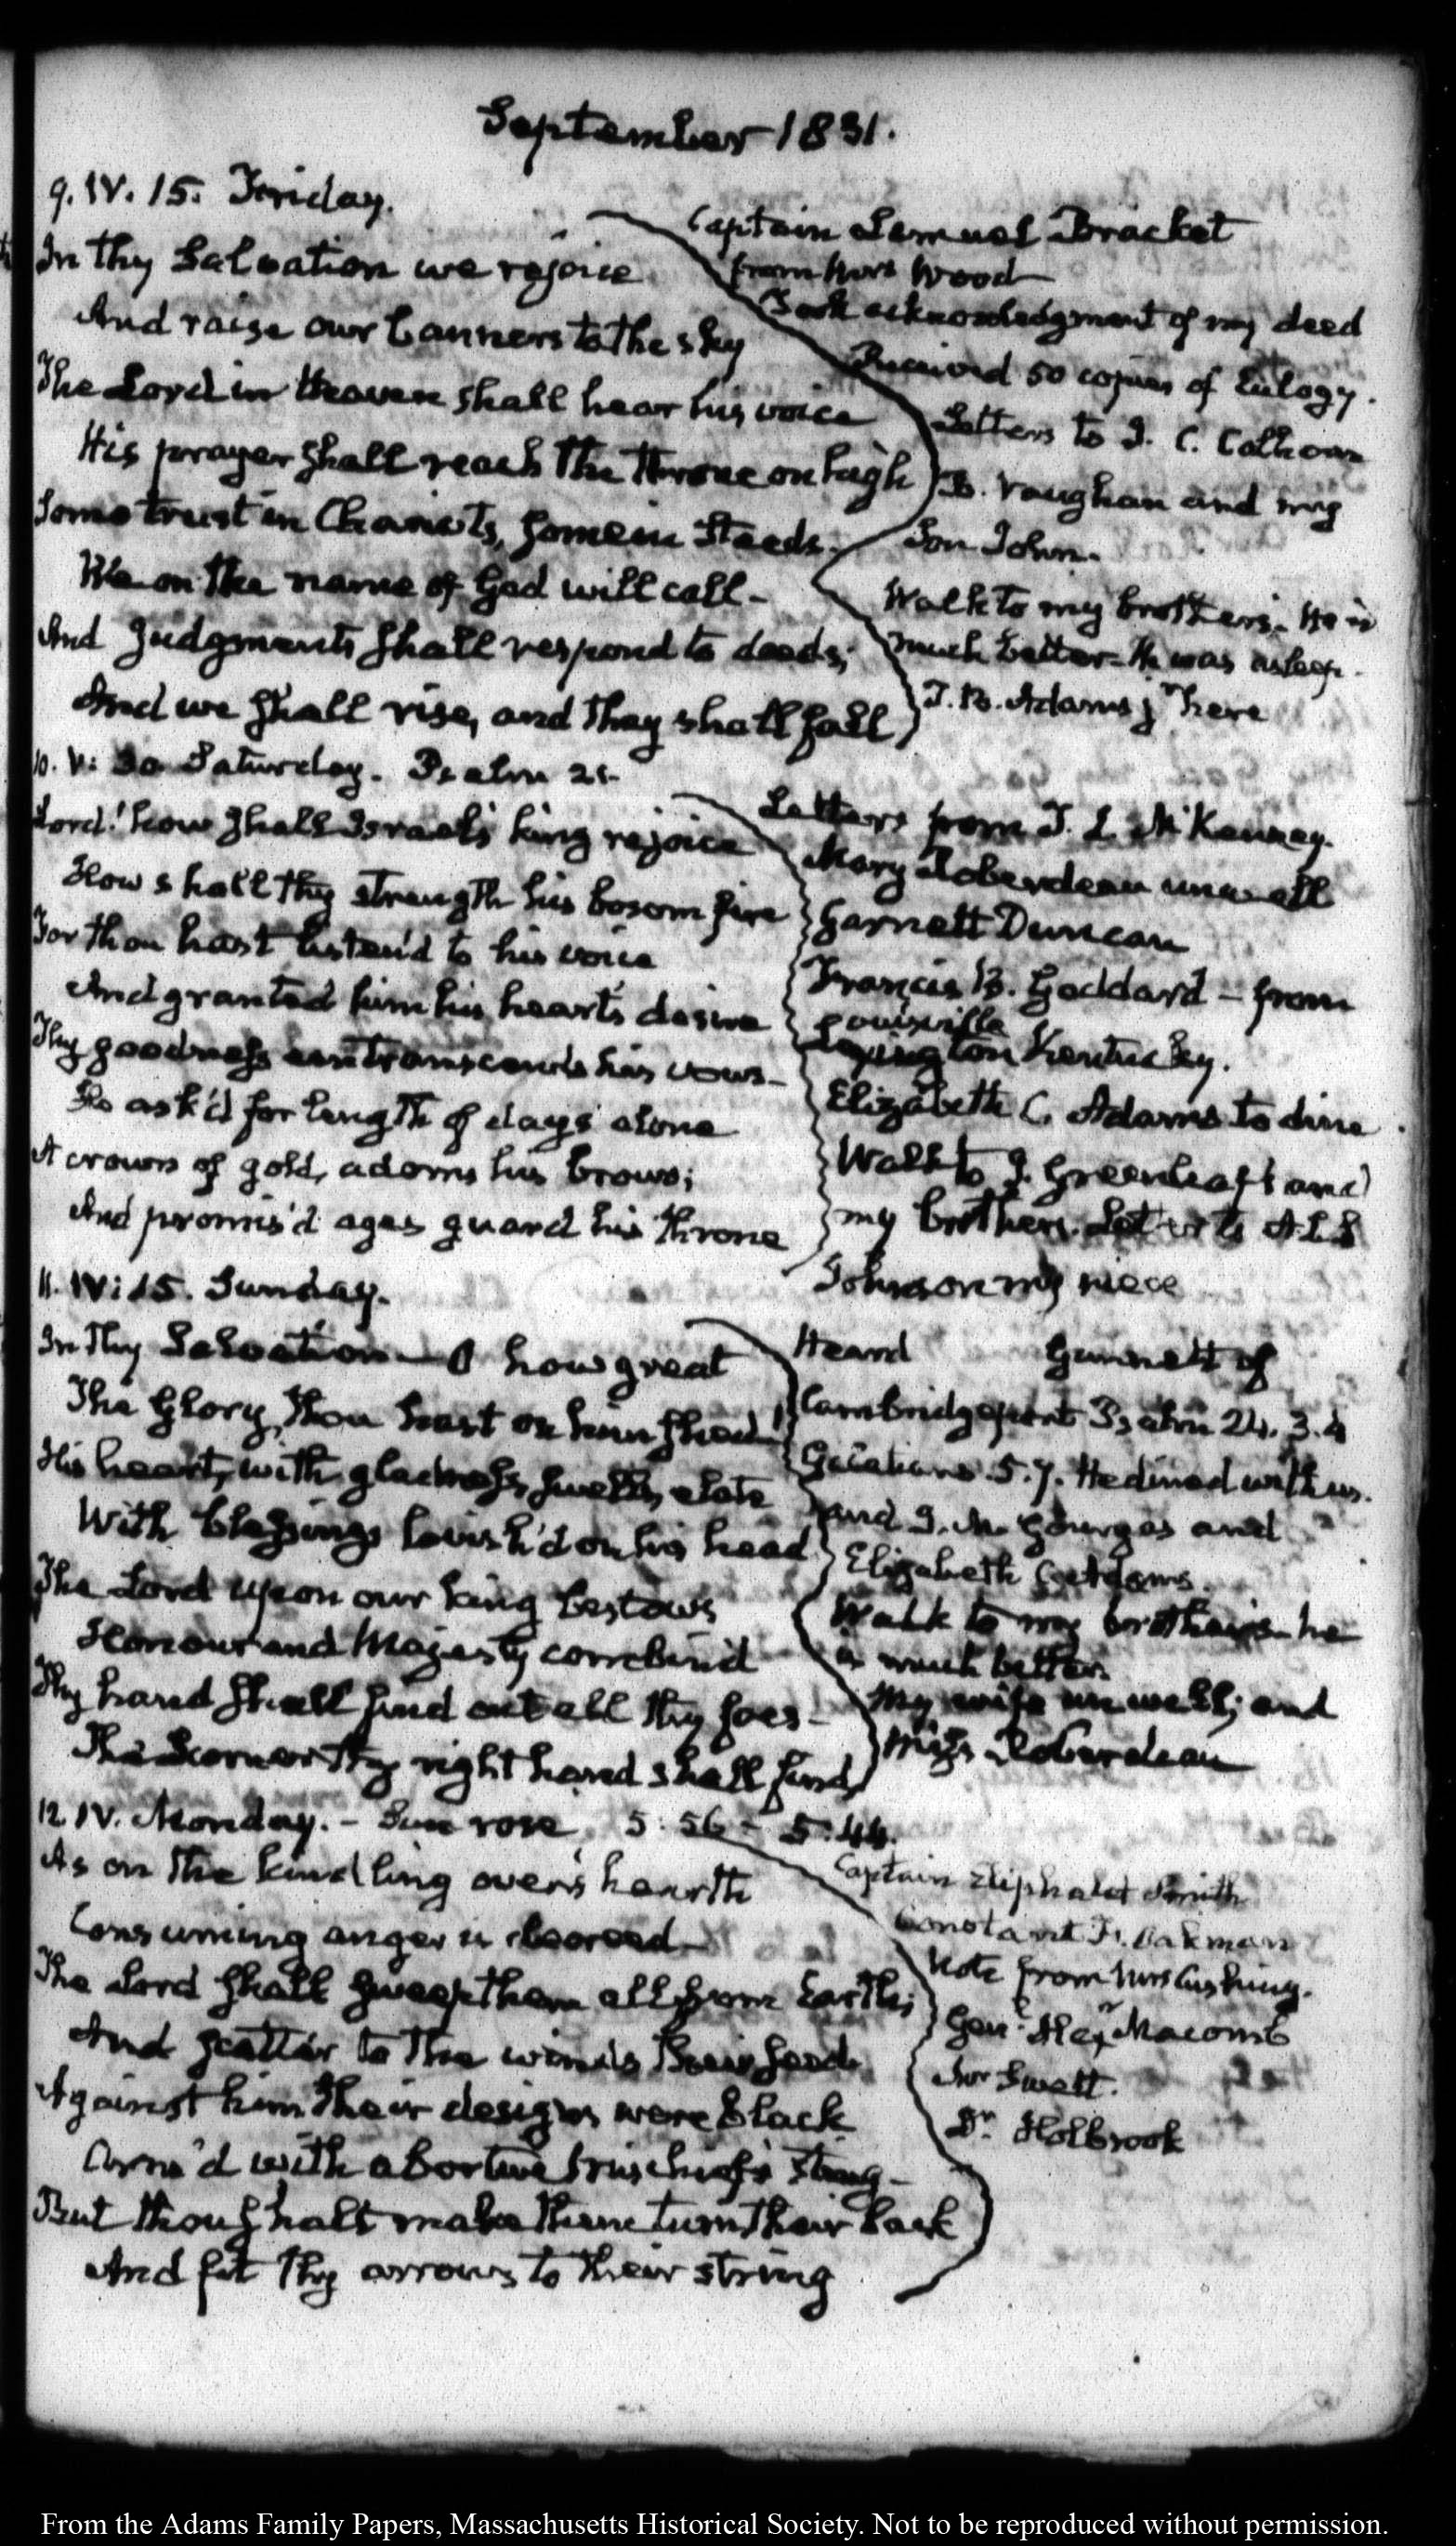 September 1831.
9. IV. 15. Friday.
In thy Salvation we rejoice
And raise our banners to the sky
The Lord in Heaven shall hear his voice
His prayer shall reach the throne on high
Some trust in Chariots, some in Steeds.
We on the name of God will call -
And Judgments shall respond to deeds;
And we shall rise, and they shall fall
Captain Lemuel Bracket
from Mrs Wood
Took acknowledgment of my deed
Received 50 copies of Eulogy.
Letters to J. C. Calhoun
B. Vaughan and my
Son John.
Walk to my brother's. He is
much better - He was asleep.
T. B. Adams jr here
10. V: 30 Saturday. Psalm 21.
Lord! how shall Israel's king rejoice
How shall thy strength his bosom fire
For thou hast listen'd to his voice
And granted him his heart's desire
Thy goodness transcends his vows -
He ask'd for length of days alone
A crown of gold, adorns his brows;
And promis'd ages guard his throne
Letters from T. L. McKenney.
Mary Roberdeau unwell
Garnett Duncan
Francis B. Goddard - from
Louisville
Lexington Kentucky.
Elizabeth C. Adams to dine
Walk to J. Greenleaf's and
my brother. Letter to A L S
Johnson my niece
11. IV: 15. Sunday.
In Thy Salvation - O how great
The Glory, Thou hast on him shed!
His heart, with gladness, swells, elate
With blessings lavish'd on his head
The Lord upon our king bestows
Honour and Majesty combin'd
Thy hand shall find out all thy foes -
The Scorner thy right hand shall find
Heard Gunnett of
Cambridgeport Psalm 24. 3.4
Galatians 5.7. He dined with us.
and J. M. Gourgas and
Elizabeth C. Adams.
Walk to my brother's - he
is much better.
My wife unwell; and
Miss Roberdeau
12. IV. Monday. - Sun rose 5:56 - 5:44.
As on the kindling oven's hearth
Consuming anger is
The Lord shall sweep them all from Earth;
And scatter to the winds their seed.
Against him their designs were black
Arm'd with abortive mischief's sting -
But thou shalt make them turn their back
And fit thy arrows to their string
Captain Eliphalet Smith
Constant F. Oakman
Note from Mrs Cushing.
Genl. Alexr Macomb
Mr Swett.
Dr. Holbrook
From the Adams Family Papers, Massachusetts Historical Society. Not to be reproduced without permission.